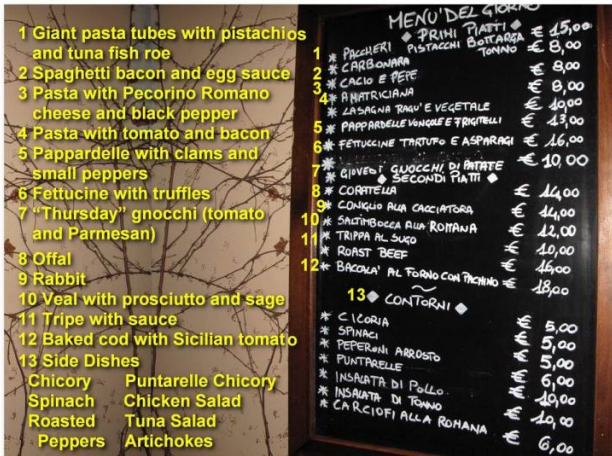 1 Giant pasta tubes with pistachios
and tuna fish roe
2 Spaghetti bacon and egg sauce
3 Pasta with Pecorino Romano
cheese and black pepper
4 Pasta with tomato and bacon
5 Pappardelle with clams and
small peppers
6 Fettucine with truffles
7 “Thursday” gnocchi (tomato
and Parmesan)
8 Offal
9 Rabbit
10 Veal with prosciutto and sage
11 Tripe with sauce
12 Baked cod with Sicilian tomato
13 Side Dishes
Chicory Puntarelle Chicory
Spinach Chicken Salad
Roasted Tuna Salad
Peppers Artichokes
MENU' DEL GIORNO
PRIMI PIATTI
1 * PACCHERI PISTACCHI BOTTARGA TONNO € 15,00
2 * CARBONARA € 8,00
3 * CACIO E PEPE € 8,00
4 * AMATRICIANA € 8,00
* LASAGNA RAGU' E VEGETALE € 10,00
5 * PAPPARDELLE VONGOLE E FRIGITELLI € 13,00
6 * FETTUCCINE TARTUFO E ASPARAGI € 16,00
7 * GIOVEDI GNOCCHI DI PATATE € 10,00
SECONDI PIATTI
8 * CORATELLA € 14,00
9 * CONIGLIO ALLA CACCIATORA € 14,00
10 * SALTIMBOCCA ALLA ROMANA € 12,00
11 * TRIPPA AL SUGO € 10,00
* ROAST BEEF € 16,00
12 * BACOLA' AL FORNO CON PACHINO € 18,00
13 CONTORNI
* CICORIA € 5,00
* SPINACI € 5,00
* PEPERONI ARROSTO € 5,00
* PUNTARELLE € 6,00
* INSALATA DI POLLO € 10,00
* INSALATA DI TONNO € 10,00
* CARCIOFI ALLA ROMANA € 6,00